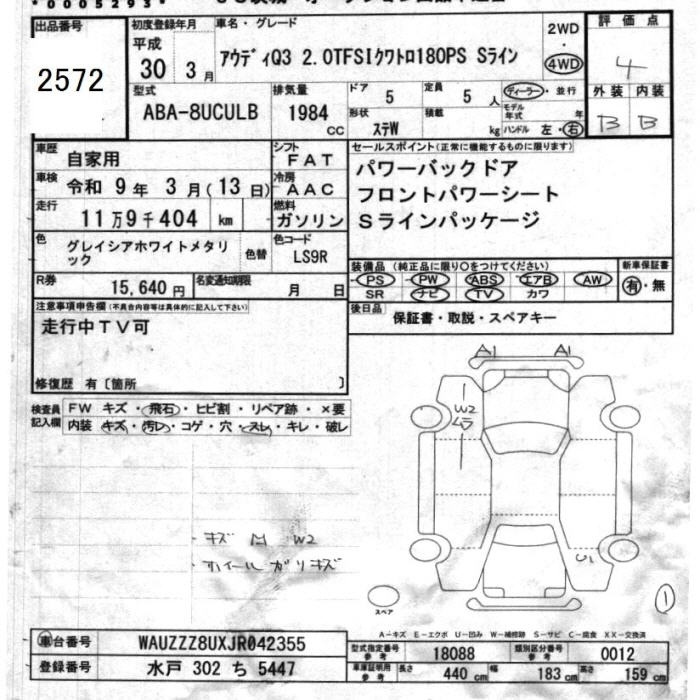 *00005293*
出品番号
2572
初度登録年月
平成
30 3 月
車名・グレード
アウディQ3 2.0TFSIクワトロ180PS Sライン
2WD
・
4WD
評価点
4
外装 内装
B B
型式
ABA-8UCULB
排気量
1984 CC
ドア 5
定員 5 人
形状 ステW
積載 kg
ディーラー・並行
モデル年式 年
ハンドル 左・右
車歴 自家用
シフト FAT
車検 令和 9年 3月(13日)
冷房 AAC
走行 11万9千404 km
燃料 ガソリン
色 グレイシアホワイトメタリック
色替
色コード LS9R
R券 15,640円
名変通知期限 月 日
セールスポイント(正常に機能するものに限ります)
パワーバックドア
フロントパワーシート
Sラインパッケージ
装備品(純正品に限り○をつけてください)
PS・PW・ABS・エアB・AW
SR ナビ・TV カワ
新車保証書
有・無
後日品 保証書・取説・スペアキー
注意事項申告欄(不具合内容等は具体的に記入して下さい)
走行中TV可
修復歴 有〔箇所 〕
検査員記入欄
FW キズ・飛石・ヒビ割・リペア跡・×要
内装 キズ・汚レ・コゲ・穴・スレ・キレ・破レ
キズ M W2
ホイール ガリキズ
A1 A1
W2
ムラ
U1
スペア
1
A-キズ E-エクボ U-凹み W-補修跡 S-サビ C-腐食 XX-交換済
車台番号 WAUZZZ8UXJR042355
登録番号 水戸 302 ち 5447
型式指定番号 参考 18088
類別区分番号 参考 0012
車庫証明用 参考 長さ 440 cm 幅 183 cm 高さ 159 cm